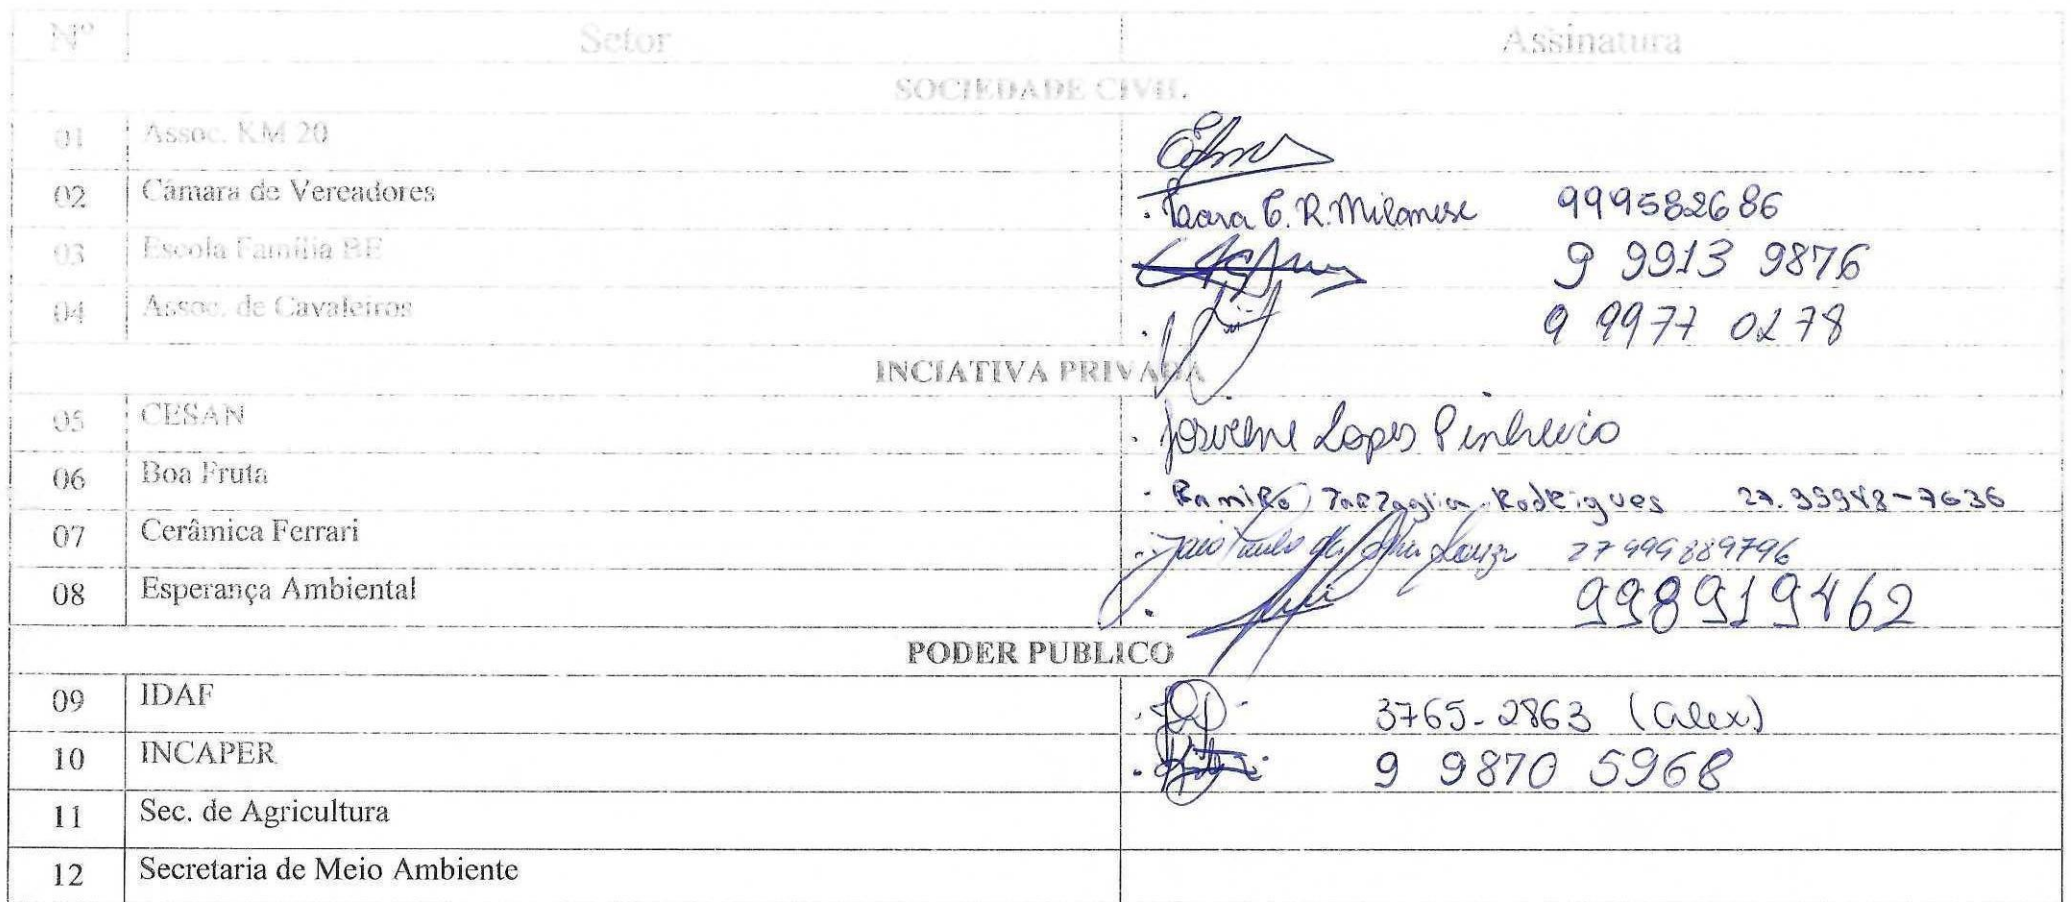 Nº Setor Assinatura
SOCIEDADE CIVIL.
01 Assoc. KM 20
02 Câmara de Vereadores C. R. Milanese 999582686
03 Escola Família BE 9 9913 9876
04 Assoc. de Cavaleiros 9 9977 0278
INCIATIVA PRIVADA
05 CESAN Lopes Pinheiro
06 Boa Fruta Ramiro Tartaglia Rodrigues 27.99948-7636
07 Cerâmica Ferrari João Paulo da Souza 27 999889796
08 Esperança Ambiental 998919462
PODER PUBLICO
09 IDAF 3765-2863 (Alex)
10 INCAPER 9 9870 5968
11 Sec. de Agricultura
12 Secretaria de Meio Ambiente